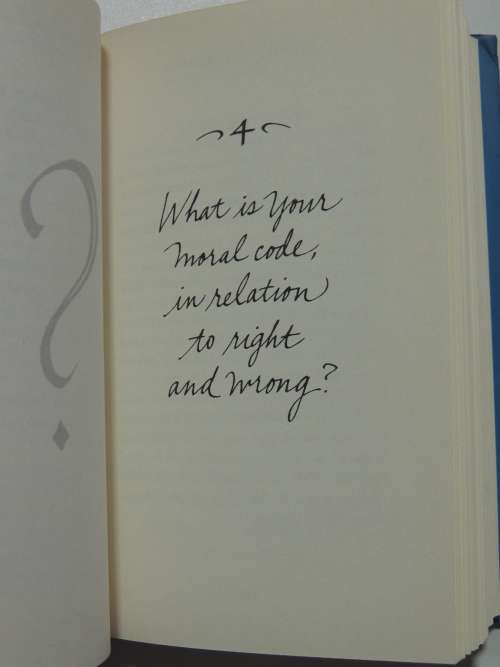 4
What is Your
moral code,
in relation
to right
and wrong?